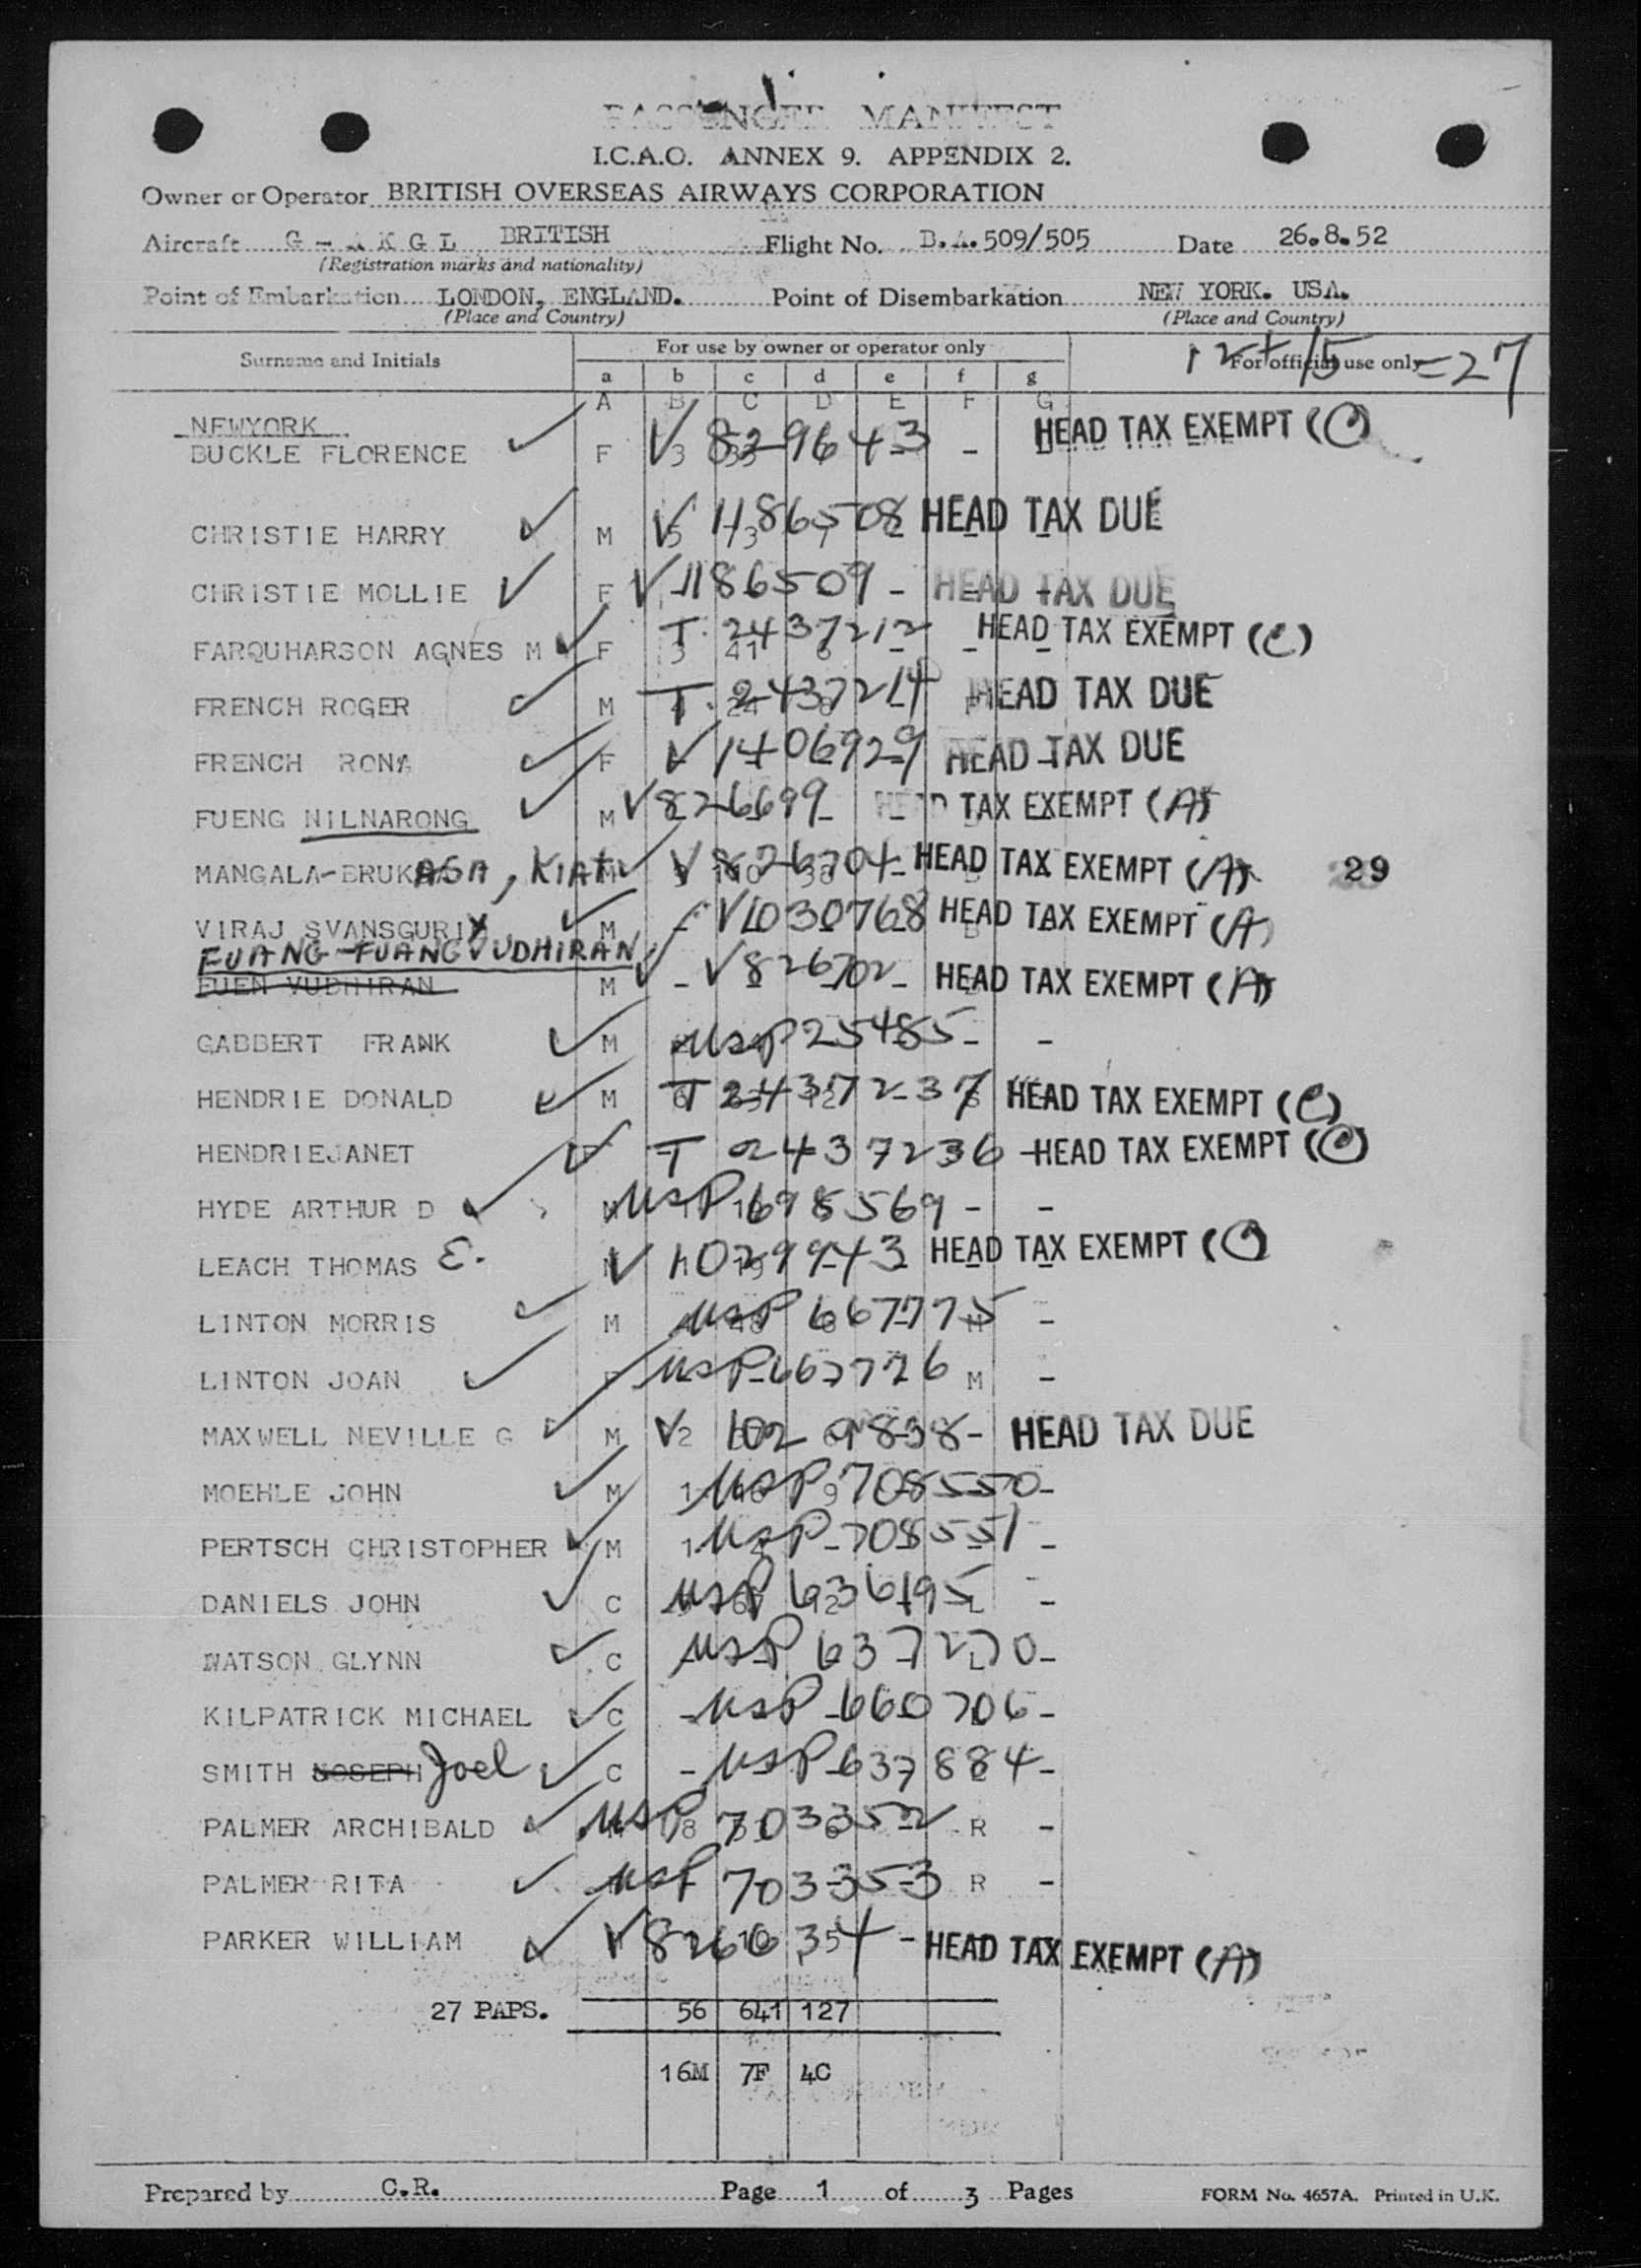 PASSENGER MANIFEST
I.C.A.O. ANNEX 9. APPENDIX 2.
Owner or Operator BRITISH OVERSEAS AIRWAYS CORPORATION
Aircraft G - A K G L BRITISH Flight No. B.A. 509/505 Date 26.8.52
(Registration marks and nationality)
Point of Embarkation LONDON, ENGLAND. Point of Disembarkation NEW YORK. USA.
(Place and Country) (Place and Country)
Surname and Initials For use by owner or operator only For official use only 12+15=27
a b c d e f g
A B C D E F G
NEWYORK
BUCKLE FLORENCE F V 8296443 - HEAD TAX EXEMPT (C)
CHRISTIE HARRY M V 1186508 HEAD TAX DUE
CHRISTIE MOLLIE F V 1186509 - HEAD TAX DUE
FARQUHARSON AGNES M F T. 2437212 HEAD TAX EXEMPT (C)
FRENCH ROGER M T. 2437214 HEAD TAX DUE
FRENCH RONA F V 1406929 HEAD TAX DUE
FUENG NILNARONG M V 826699 HEAD TAX EXEMPT (A)
MANGALA-BRUKASA, KIAT M V 826704 - HEAD TAX EXEMPT (A) 29
VIRAJ SVANSGURIY M - V1030768 HEAD TAX EXEMPT (A)
FUANG-FUANGVUDHIRAN
FUEN VUDHIRAN M - V 826702 - HEAD TAX EXEMPT (A)
GABBERT FRANK M USP 25485 - -
HENDRIE DONALD M T 2437237 HEAD TAX EXEMPT (C)
HENDRIEJANET F T 2437236 - HEAD TAX EXEMPT (C)
HYDE ARTHUR D M USP 1698569 - -
LEACH THOMAS E. M V 1029943 HEAD TAX EXEMPT (C)
LINTON MORRIS M USP 667775 -
LINTON JOAN F USP 667776 M -
MAXWELL NEVILLE G M V 1029838 - HEAD TAX DUE
MOEHLE JOHN M 1 USP 708550 -
PERTSCH CHRISTOPHER M 1 USP 708551 -
DANIELS JOHN C USP 636195 L -
WATSON GLYNN C USP 637270 -
KILPATRICK MICHAEL C - USP 660706 -
SMITH JOSEPH Joel C - USP 637884 -
PALMER ARCHIBALD M USP 703352 R -
PALMER RITA USP 703353 R -
PARKER WILLIAM V 8266354 - HEAD TAX EXEMPT (A)
27 PAPS. 56 641 127
16M 7F 4C
Prepared by C.R. Page 1 of 3 Pages FORM No. 4657A. Printed in U.K.